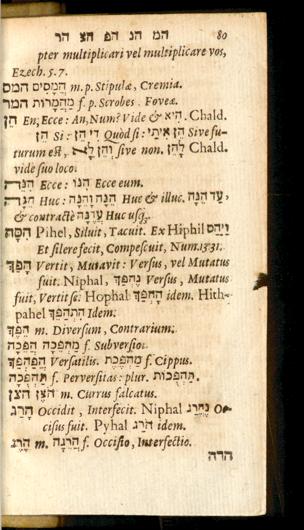 המ הנ הפ הצ הר 80
pter multiplicari vel multiplicare vos,
Ezech. 5.7.
הֲמָסִים המס m. p. Stipulæ, Cremia.
מַהֲמֹרוֹת המר f. p. Scrobes. Foveæ.
הֵן En, Ecce: An, Num? Vide הִיא & Chald.
הֵן Si: דִּי הֵן Quòd si: הֵן אִיתַי Sive fu-
turum est, וְהֵן לָא sive non. לָהֵן Chald.
vide suo loco.
הִנֵּה Ecce: הִנּוֹ Ecce eum.
הֵנָּה Huc: הֵנָּה וָהֵנָּה Huc & illuc. עַד הֵנָּה,
& contractè עֲדֶנָה Huc usq;.
הסה Pihel, Siluit, Tacuit. Ex Hiphil וַיַּהַס
Et silere fecit, Compescuit, Num.13.31.
הָפַךְ Vertit, Mutavit: Versus, vel Mutatus
fuit. Niphal, נֶהְפַּךְ Versus, Mutatus
fuit, Vertit se: Hophal הָהְפַּךְ idem. Hith-
pahel הִתְהַפֵּךְ Idem.
הֶפֶךְ m Diversum, Contrarium.
הֲפֵכָה מַהְפֵּכָה f. Subversio.
הֲפַכְפַּךְ Versatilis. מַהְפֶּכֶת f. Cippus.
תַּהְפֻּכָה f. Perversitas: plur. תַּהְפֻּכוֹת.
הֹצֶן הצן m. Currus falcatus.
הָרַג Occidit, Interfecit. Niphal נֶהֱרַג Oc-
cisus fuit. Pyhal הֹרַג idem.
הֶרֶג m. הֲרֵגָה f. Occisio, Interfectio.
הרה